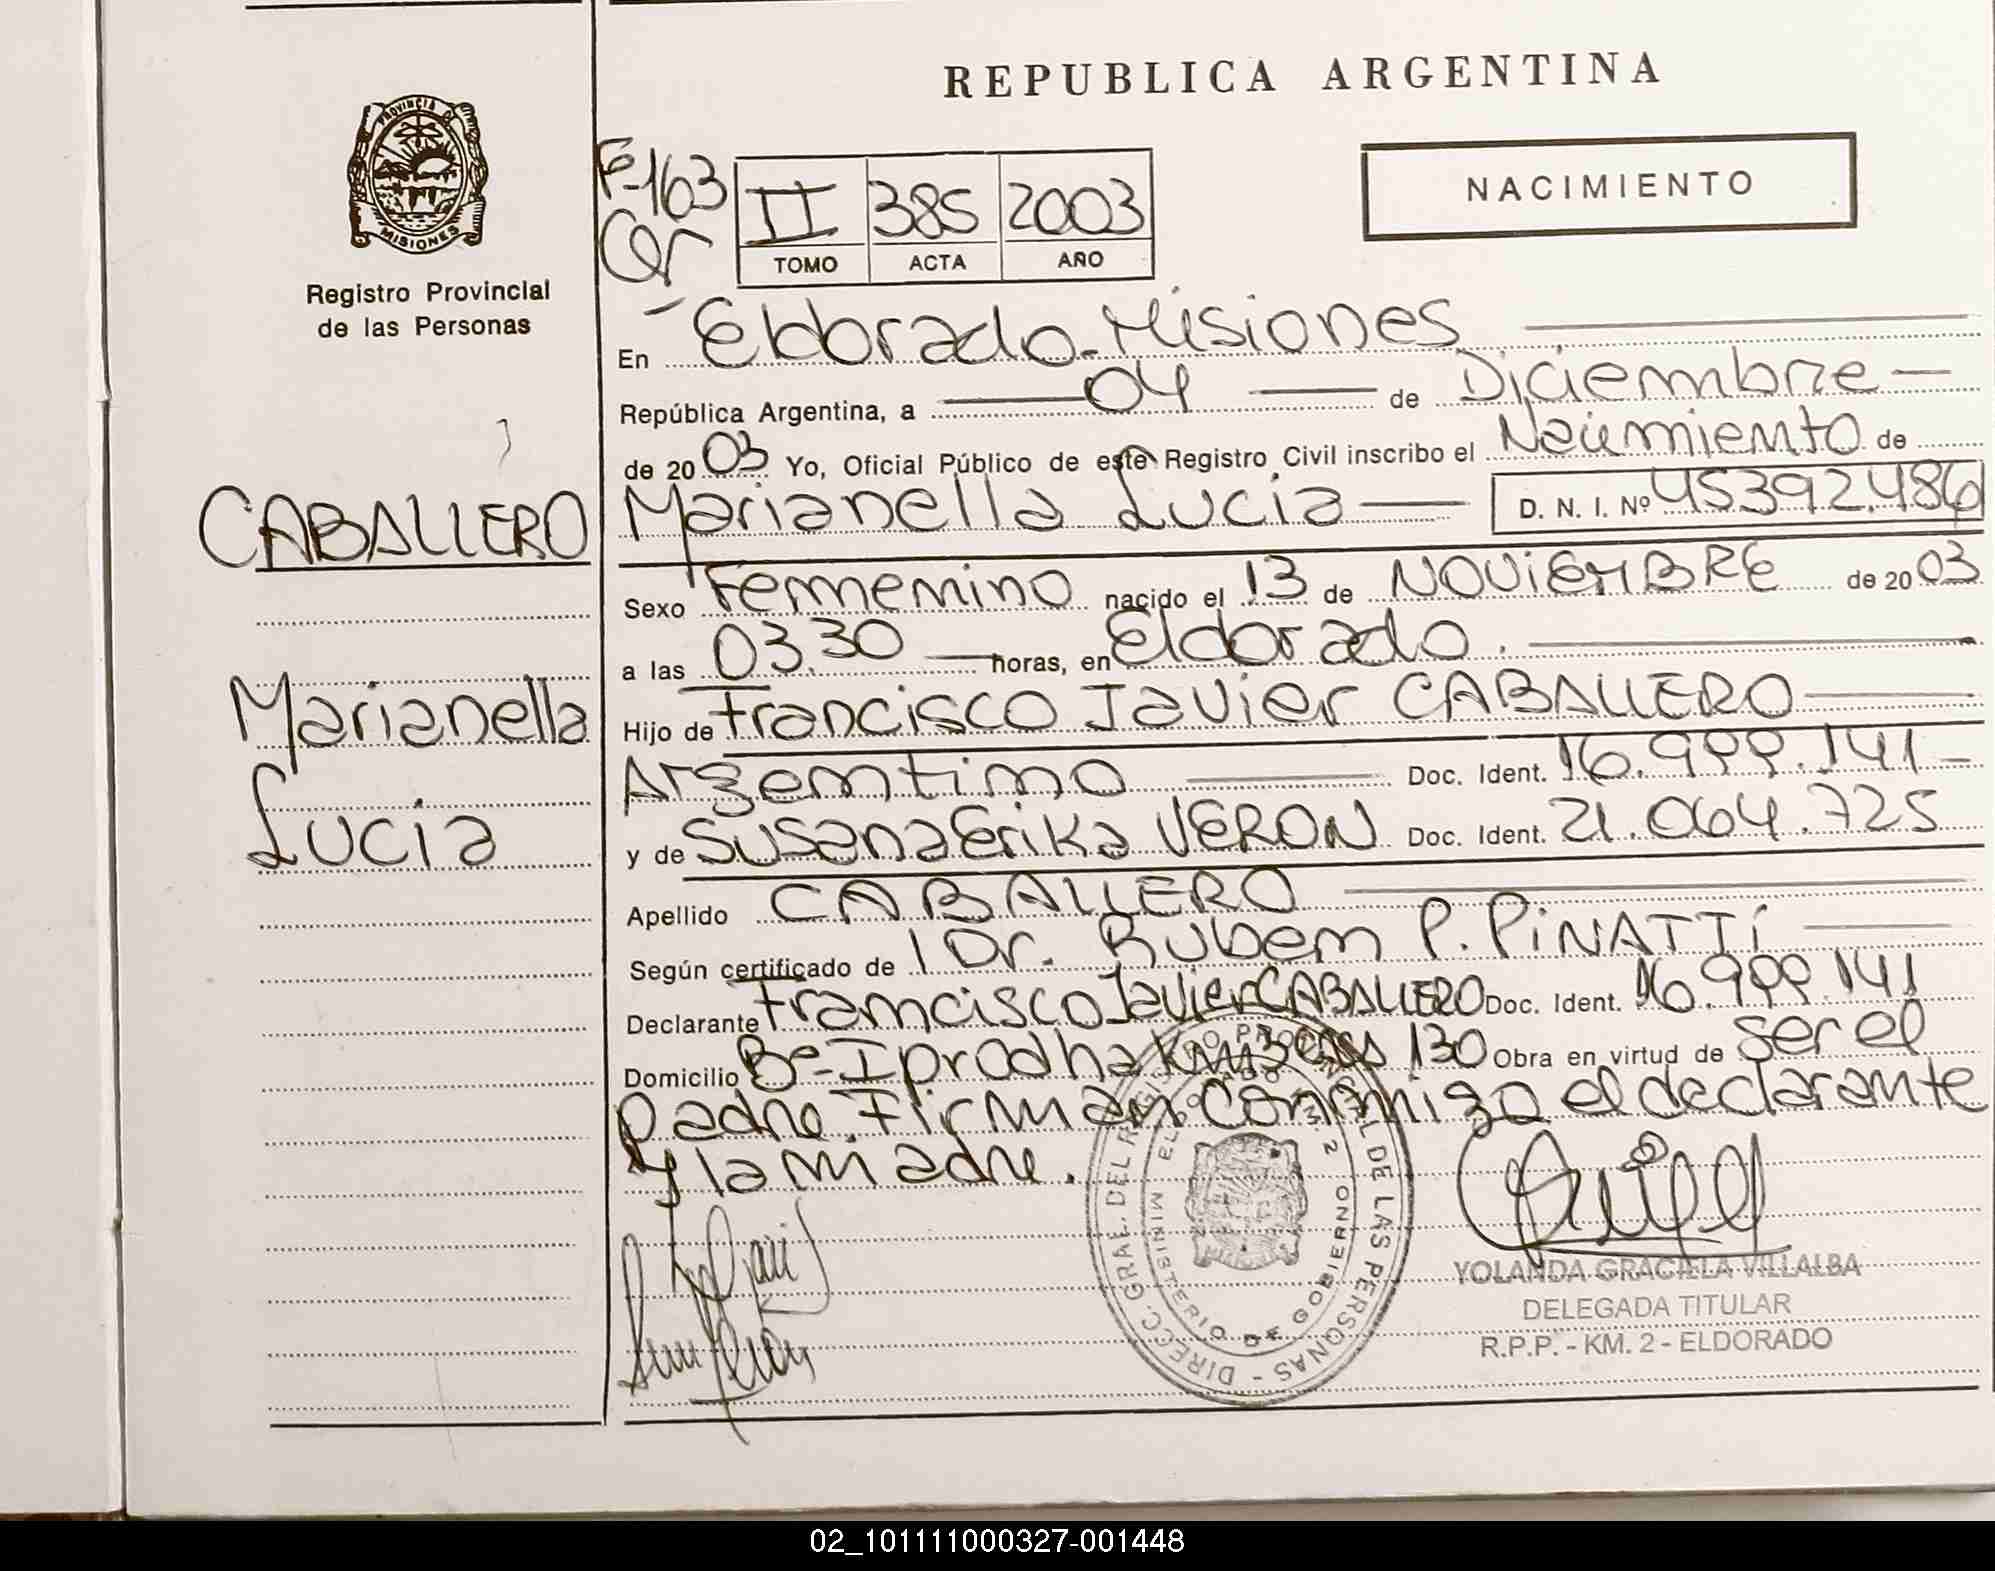 REPUBLICA ARGENTINA
NACIMIENTO
PROVINCIA DE
MISIONES
Registro Provincial
de las Personas
Fº-163
II 385 2003
TOMO ACTA AÑO
En Eldorado-Misiones
República Argentina, a 04 de Diciembre
de 2003 Yo, Oficial Público de este Registro Civil inscribo el Nacimiento de
Marianella Lucia D. N. I. Nº 45392.486
CABALLERO
Marianella
Lucia
Sexo Femenino nacido el 13 de NOVIEMBRE de 2003
a las 03.30 horas, en Eldorado.
Hijo de Francisco Javier CABALLERO
Argentino Doc. Ident. 16.999.141
y de Susana Erika VERON Doc. Ident. 21.064.725
Apellido CABALLERO
Según certificado de Dr. Ruben P. PiNATTi
Declarante Francisco Javier CABALLERO Doc. Ident. 16.999.141
Domicilio Bº-Iprodha Km 3 130 Obra en virtud de ser el
padre. Firman conmigo el declarante
y la madre.
DIRECC. GRAL. DEL REGISTRO PROVINCIAL DE LAS PERSONAS
MINISTERIO DE GOBIERNO
ELDORADO KM. 2
YOLANDA GRACIELA VILLALBA
DELEGADA TITULAR
R.P.P. - KM. 2 - ELDORADO
02_101111000327-001448